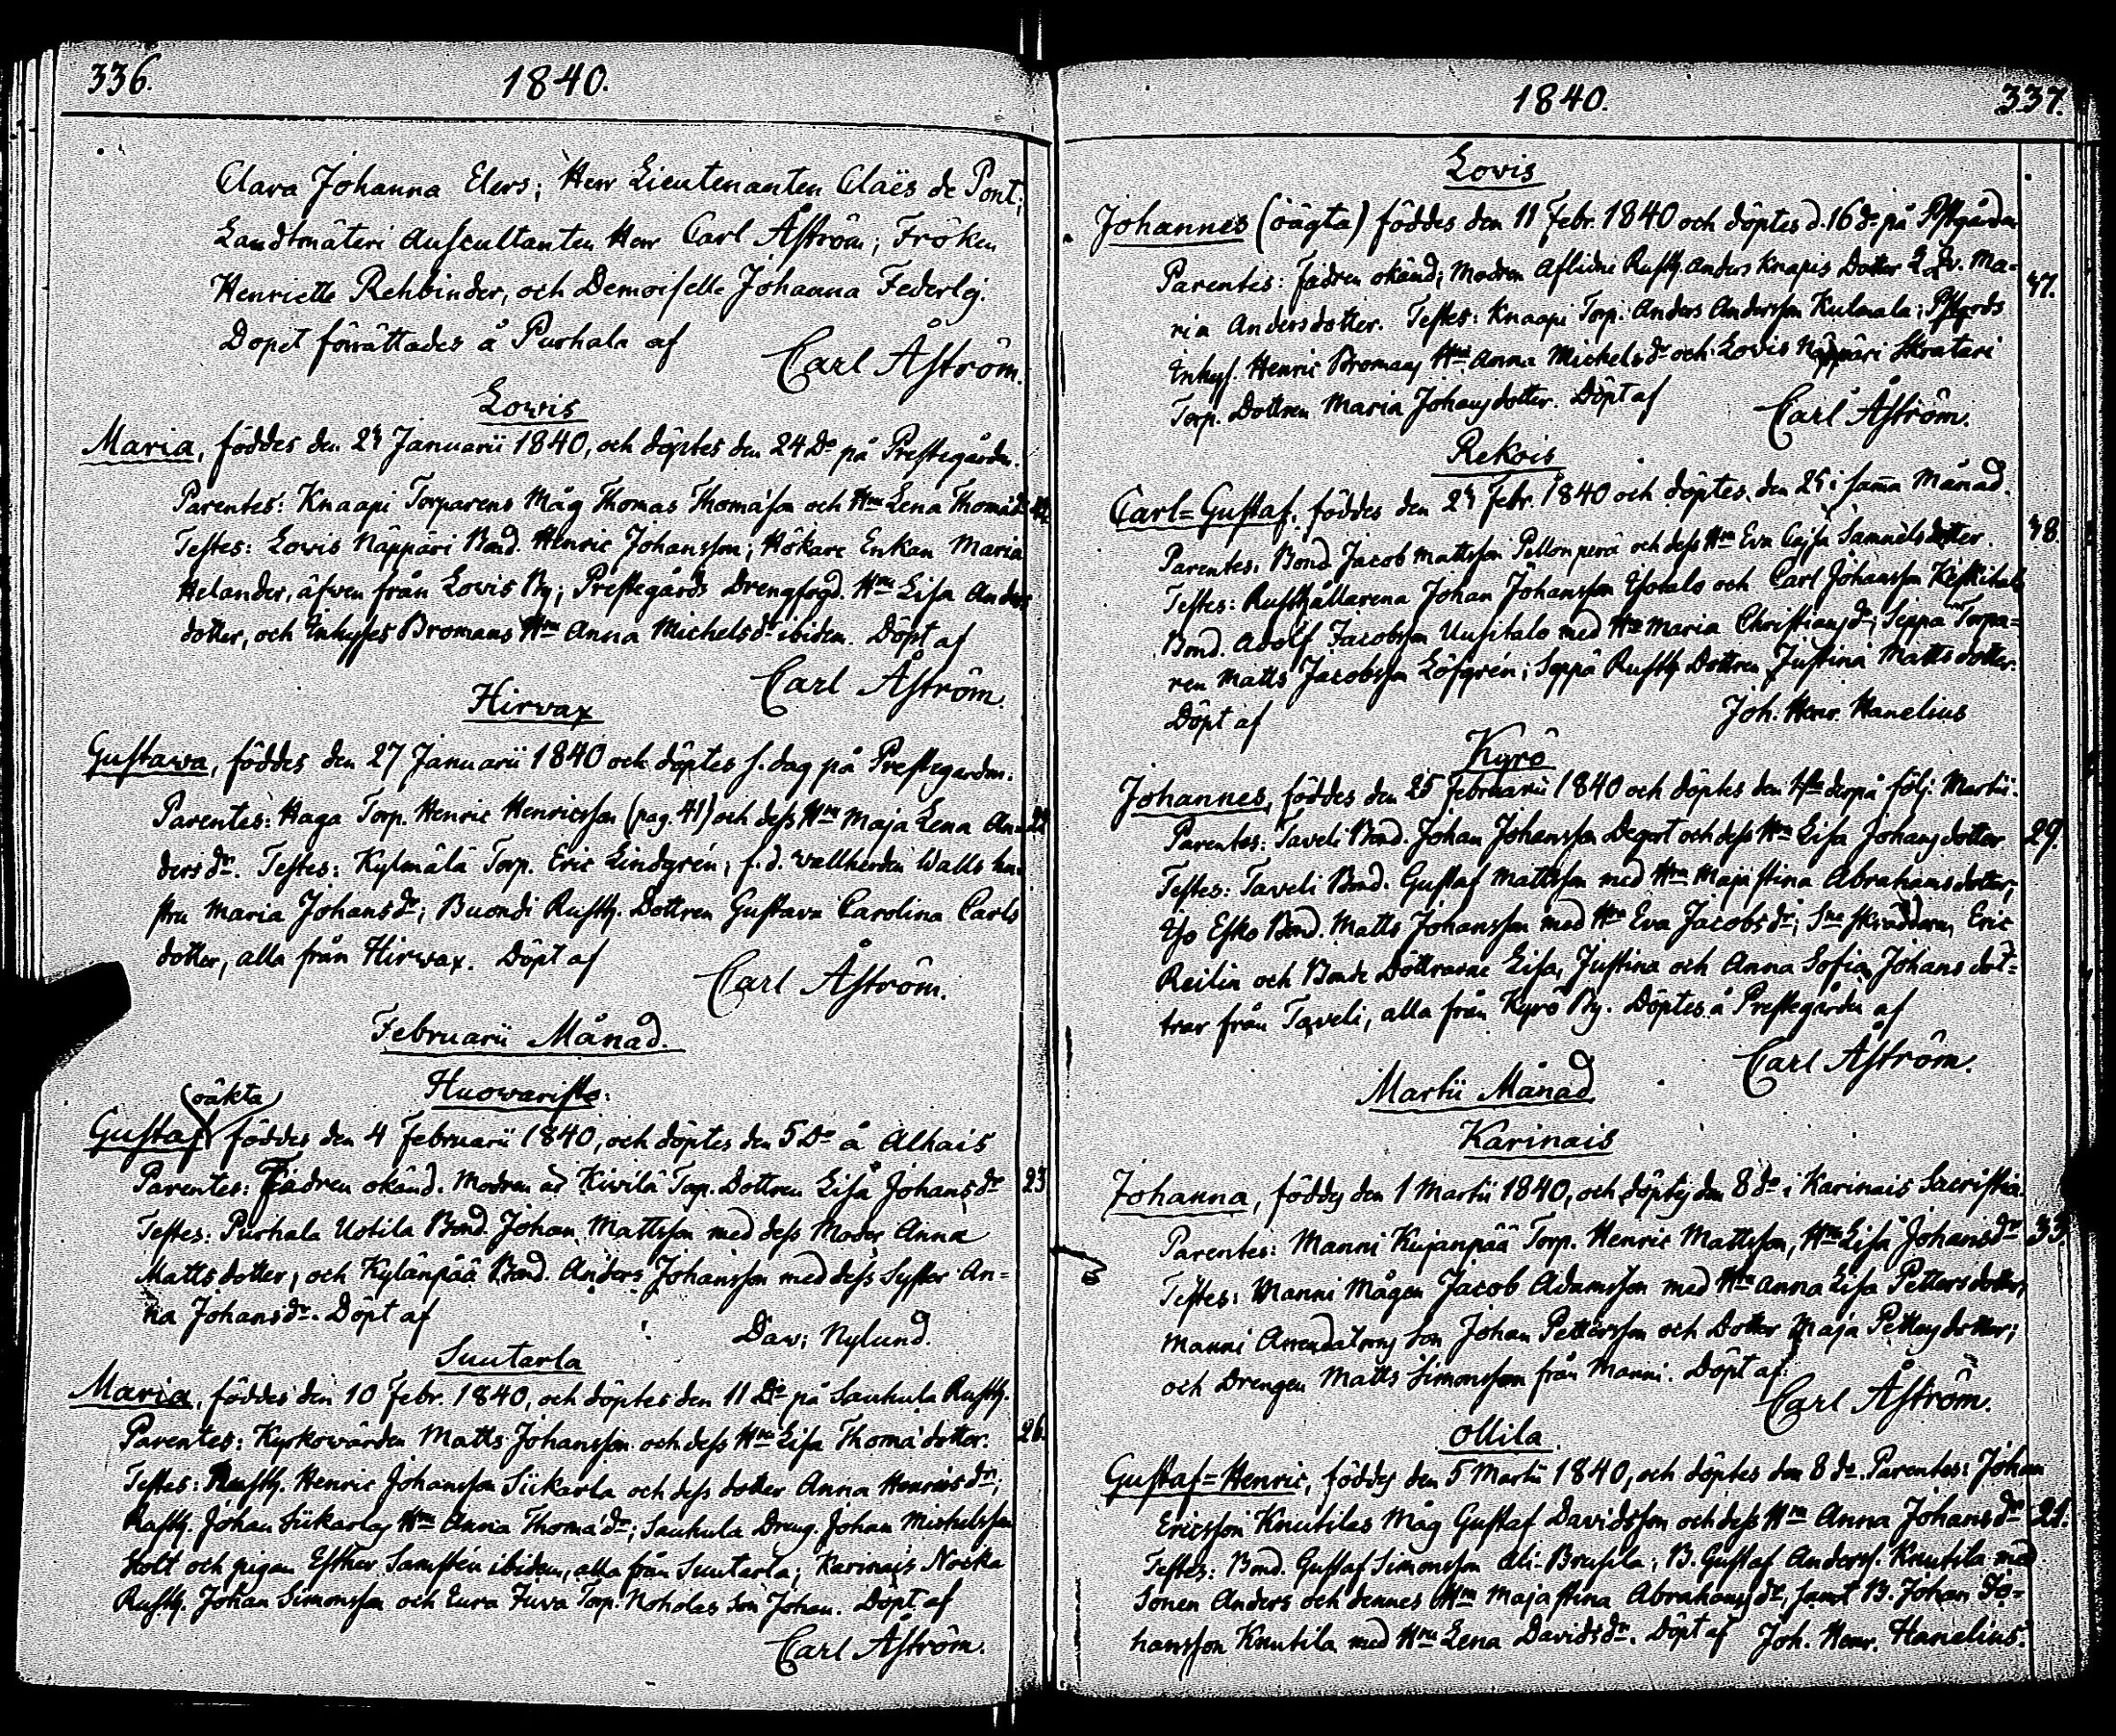 336.
1840.
Clara Johanna Elers; Herr Lieutenanten Claës de Pont;
Landtmäteri Auscultanten Herr Carl Åström; Fröken
Henriette Rehbinder, och Demoiselle Johanna Federlej.
Dopet förrättades å Purhala af
Carl Åström.
Lowis
Maria, föddes den Januarii 1840, och döptes den 24 Do på Prestegården.
Parentes: Knaapi Torparens Måg Thomas Thomæson och Hru Lena Thomædr
Testes: Lovis Näppäri Bond. Henric Johansson; Hökare Enkan Maria
Helander, äfwen från Lowis By; Prestegårds Drengfogd. Hru Lisa Anders
dotter, och Inhyses Bromans Hru Anna Michelsdr ibidem. Döpt af
Carl Åström.
Hirvax
Gustawa, föddes den 27 Januarii 1840 och döptes s. dag på Prestegården.
Parentes: Haga Torp. Henric Henricsson (pag. 41) och dess Hru Maja Lena An=
22
dersdr. Testes: Kylmälä Torp. Eric Lindgrén; f. d. vallherden Walls hu=
stru Maria Johansdr; Buondi Rusth. Dottren Gustava Carolina Carls
dotter, alla från Hirwax. Döpt af
Carl Åström.
Februarii Månad.
Huowaristo.
(oäkta)
Gustaf föddes den 4 Februarii 1840, och döptes den 5 Do å Alhais
Parentes: Fadren okänd. Modren är Kiwilä Torp. Dottren Lisa Johansdr
23
Testes: Purhala Uotila Bond. Johan Mattsson med dess Moder Anna
Mattsdotter, och Kylänpää Bond. Anders Johansson med dess Syster An=
na Johansdr. Döpt af
Dav: Nylund.
Suutarla
Maria, föddes den 10 Febr. 1840, och döptes den 11 Do på Sauhula Rusth.
Parentes: Kyrkowärden Matts Johansson och dess Hru Lisa Thomædotter.
26.
Testes: Rusth. Henric Johansson Siikarla och dess dotter Anna Henricsdr;
Rusth. Johan Siikarlas Hru Anna Thomædr; Sauhula Dreng. Johan Michelsson
Holt och pigan Esther Samstén ibidem, alla från Suutarla; Karinais Nocka
Rusth. Johan Simonsson och Eura Juva Torp. Noholas Son Johan. Döpt af
Carl Åström.
1840.
337.
Lovis
Johannes (oägta) föddes den 11 Febr. 1840 och döptes d. 16 do på Pstgården
Parentes: fadren okänd; Modren Aflidne Rusth. Anders Knapis Dotter Ma=
47.
ria Andersdotter. Testes: Knaapi Torp. Anders Andersson Kulmala; Pstgårds
Inhys. Henric Bromans Hru Anna Michelsdr och Lovis Näppäri
Torp. Dottren Maria Johansdotter. Döpt af
Carl Åström.
Rekois
Carl=Gustaf, föddes den Febr. 1840 och döptes den i samma Månad.
48.
Parentes: Bond Jacob Mattsson Pellonperä och dess Hru Eva Cajsa Samuelsdotter.
Testes: Rusthållarena Johan Johansson Isotalo och Carl Johansson Keskitalo
Bond. Adolf Jacobsson Uusitalo med Hru Maria Christiansdr; Seppä Torpa=
ren Matts Jacobsson Löfgrén; Seppä Rusth. Dottren Justina Mattsdotter.
Döpt af
Joh: Henr. Hanelius
Kyrö
Johannes, föddes den 25 Februarii 1840 och döptes den 1sta derpå följ: Martii.
Parentes: Taveli Bond. Johan Johansson Degert och dess Hru Lisa Johansdotter
29.
Testes: Taveli Bond. Gustaf Mattsson med Hru Maja Stina Abrahamsdotter;
Iso Esko Bond. Matts Johansson med Hru Eva Jacobsdr; Sne skräddaren Eric
Reilin och Bonde Döttrarne Lisa, Justina och Anna Sofia Johans döt=
trar från Taveli, alla från Kyrö By. Döptes å Prestegården af
Carl Åström.
Martii Månad
Karinais
Johanna, föddes den 1 Martii 1840, och döptes den 8 do i Karinais Sacristia.
Parentes: Manni Kujanpää Torp. Henric Mattsson, Hru Lisa Johansdr
33
Testes: Manni Mågen Jacob Adamsson med Hru Anna Lisa Pettersdotter;
Manni Arrendatorns Son Johan Pettersson och Dotter Maja Pettersdotter;
och Drengen Matts Simonsson från Manni. Döpt af
Carl Åström.
Ollila
Gustaf=Henric, föddes den 5 Martii 1840, och döptes den 8 do. Parentes: Johan
Ericsson Knutilas Måg Gustaf Davidsson och dess Hru Anna Johansdr
21.
Testes: Bond. Gustaf Simonsson Ali-Brusila; B. Gustaf Anderss. Knutila med
Sonen Anders och dennes Hru Maja Stina Abrahamsdr, samt B. Johan Jo=
hansson Knutila med Hru Lena Davidsdr. Döpt af Joh. Henr. Hanelius.